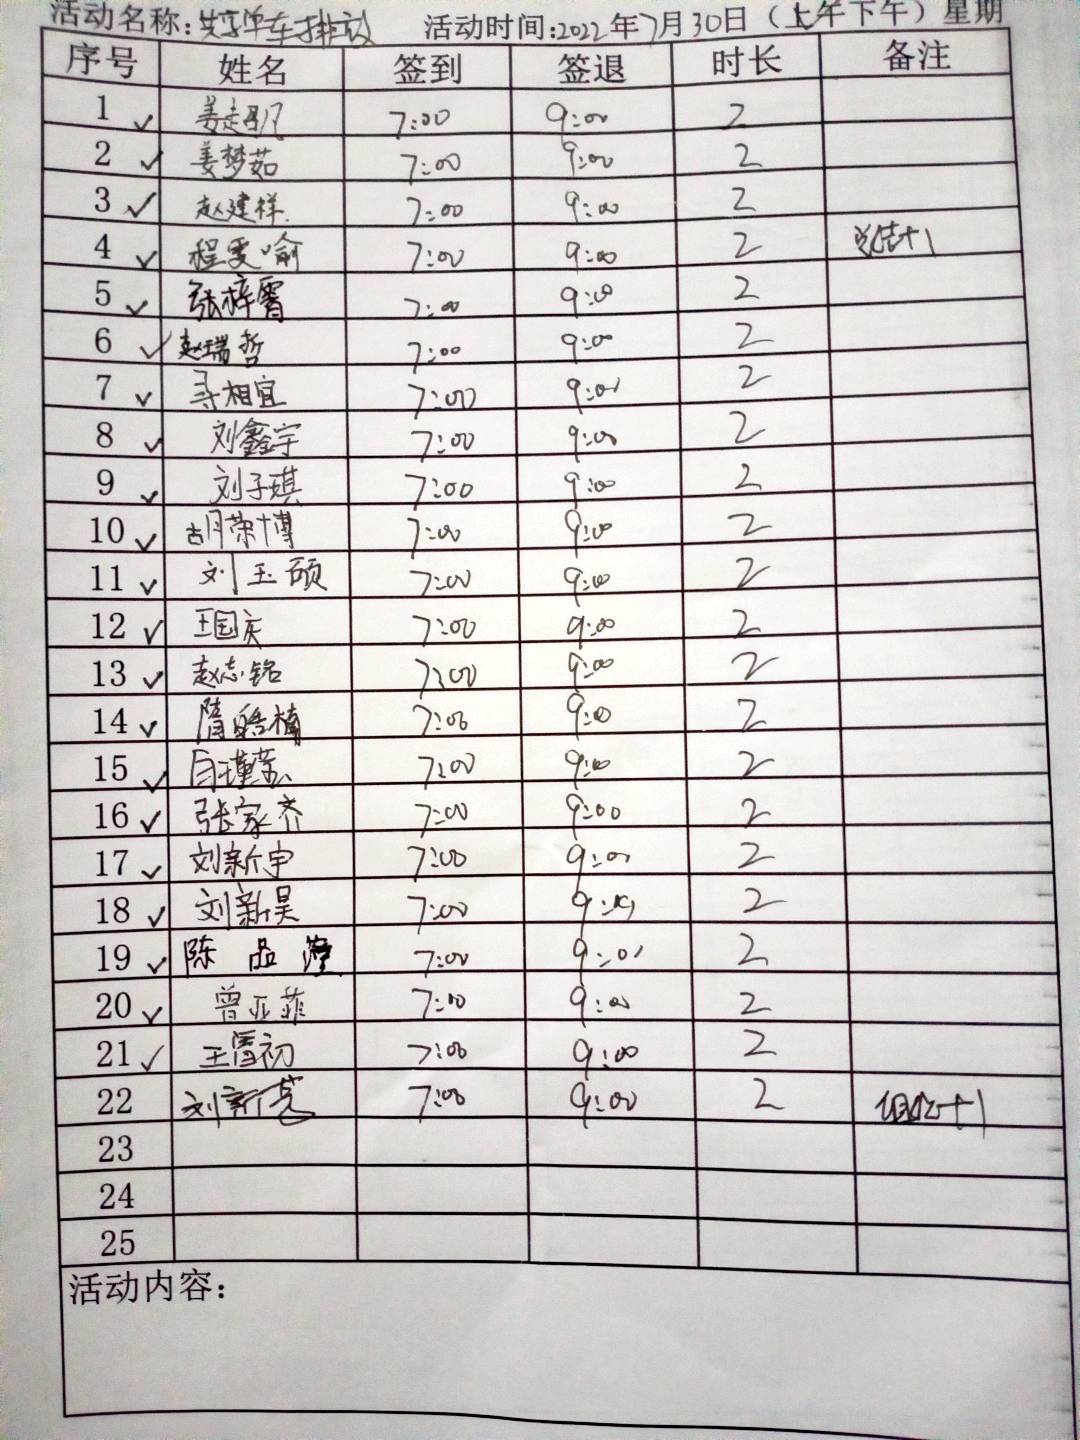 活动名称:共享单车排放 活动时间:2022年7月30日（上午下午）星期
序号 姓名 签到 签退 时长 备注
1 姜起帆 7:00 9:00 2
2 姜梦茹 7:00 9:00 2
3 赵建祥 7:00 9:00 2
4 程雯喻 7:00 9:00 2 总结+1
5 张梓霄 7:00 9:00 2
6 赵瑞哲 7:00 9:00 2
7 寻相宜 7:00 9:00 2
8 刘鑫宇 7:00 9:00 2
9 刘子琪 7:00 9:00 2
10 胡荣博 7:00 9:00 2
11 刘玉硕 7:00 9:00 2
12 王国庆 7:00 9:00 2
13 赵志铭 7:00 9:00 2
14 隋皓楠 7:00 9:00 2
15 7:00 9:00 2
16 张家齐 7:00 9:00 2
17 刘新宇 7:00 9:00 2
18 刘新昊 7:00 9:00 2
19 陈品 7:00 9:00 2
20 曾亚菲 7:00 9:00 2
21 王雪初 7:00 9:00 2
22 刘新亮 7:00 9:00 2 组织+1
23
24
25
活动内容：